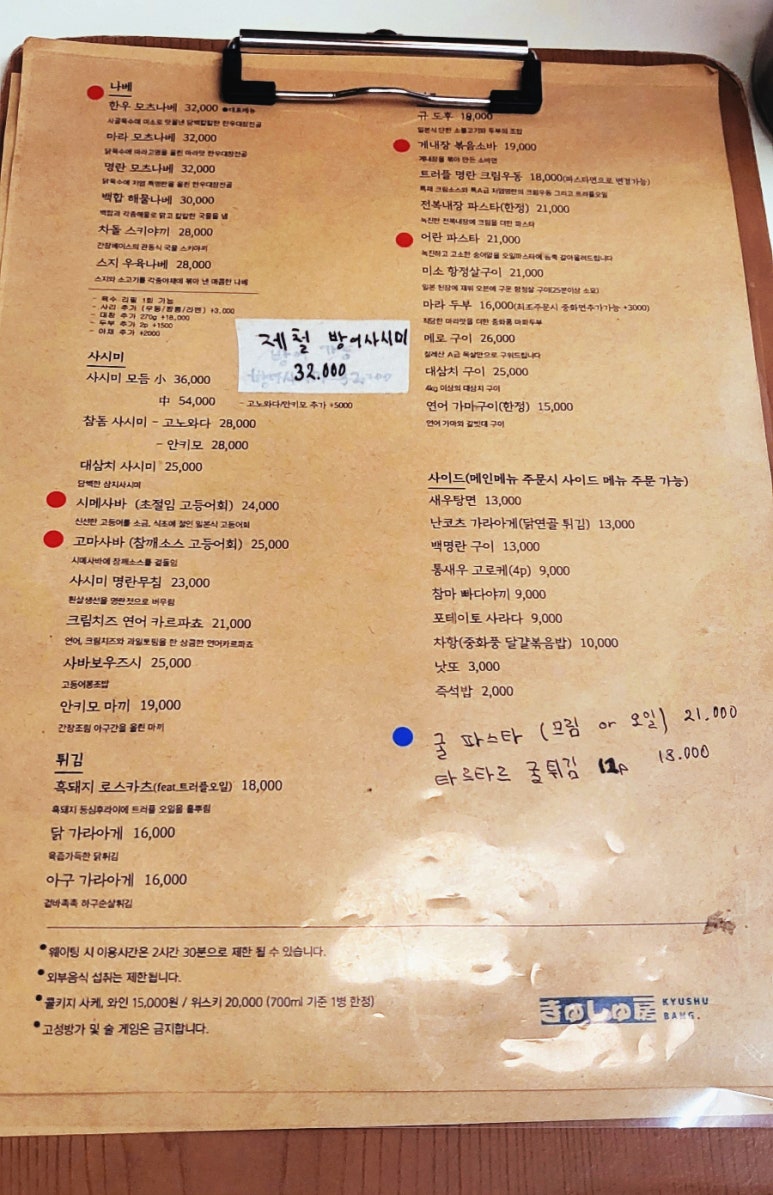 나베
한우 모츠나베 32,000 ●대표메뉴
사골육수에 미소로 맛을낸 담백칼칼한 한우대창전골
마라 모츠나베 32,000
닭육수에 마라고명을 올린 마라맛 한우대창전골
명란 모츠나베 32,000
닭육수에 저염 특명란을 올린 한우대창전골
백합 해물나베 30,000
백합과 각종해물로 맑고 칼칼한 국물을 냄
차돌 스키야끼 28,000
간장베이스의 관동식 국물 스키야키
스지 우육나베 28,000
스지와 소고기를 각종야채에 볶아 낸 매콤한 나베
- 육수 리필 1회 가능
- 사리 추가 (우동/짬뽕/라면) +3,000
- 대창 추가 270g +18,000
- 두부 추가 2p +1500
- 야채 추가 +2000
제철 방어사시미
32.000
사시미
사시미 모듬 小 36,000
中 54,000 - 고노와다/안키모 추가 +5000
참돔 사시미 - 고노와다 28,000
- 안키모 28,000
대삼치 사시미 25,000
담백한 삼치사시미
시메사바 (초절임 고등어회) 24,000
신선한 고등어를 소금, 식초에 절인 일본식 고등어회
고마사바 (참깨소스 고등어회) 25,000
시메사바에 참깨소스를 곁들임
사시미 명란무침 23,000
흰살생선을 명란젓으로 버무림
크림치즈 연어 카르파쵸 21,000
연어, 크림치즈와 과일토핑을 한 상큼한 연어카르파쵸
사바보우즈시 25,000
고등어봉초밥
안키모 마끼 19,000
간장조림 아구간을 올린 마끼
튀김
흑돼지 로스카츠(feat.트러플오일) 18,000
흑돼지 등심후라이에 트러플 오일을 흩뿌림
닭 가라아게 16,000
육즙가득한 닭튀김
아구 가라아게 16,000
겉바촉촉 아구순살튀김
규 도후 18,000
일본식 단짠 소불고기와 두부의 조합
게내장 볶음소바 19,000
게내장을 볶아 만든 소바면
트러플 명란 크림우동 18,000(파스타면으로 변경가능)
특제 크림소스와 특A급 저염명란의 크림우동 그리고 트러플오일
전복내장 파스타(한정) 21,000
녹진한 전복내장에 크림을 더한 파스타
어란 파스타 21,000
녹진하고 고소한 숭어알을 오일파스타에 듬뿍 갈아올려드립니다
미소 항정살구이 21,000
일본 된장에 재워 오븐에 구운 항정살 구이(25분이상 소요)
마라 두부 16,000(최초주문시 중화면추가가능 +3000)
적당한 마라맛을 더한 중화풍 마파두부
메로 구이 26,000
칠레산 A급 목살만으로 구워드립니다
대삼치 구이 25,000
4kg 이상의 대삼치 구이
연어 가마구이(한정) 15,000
연어 가마와 갈빗대 구이
사이드(메인메뉴 주문시 사이드 메뉴 주문 가능)
새우탕면 13,000
난코츠 가라아게(닭연골 튀김) 13,000
백명란 구이 13,000
통새우 고로케(4p) 9,000
참마 빠다야끼 9,000
포테이토 사라다 9,000
차항(중화풍 달걀볶음밥) 10,000
낫또 3,000
즉석밥 2,000
굴 파스타 (크림 or 오일) 21.000
타르타르 굴튀김 12p 18.000
•웨이팅 시 이용시간은 2시간 30분으로 제한 될 수 있습니다.
•외부음식 섭취는 제한됩니다.
•콜키지 사케, 와인 15,000원 / 위스키 20,000 (700ml 기준 1병 한정)
•고성방가 및 술 게임은 금지합니다.
きゅしゅ房 KYUSHU
BANG.